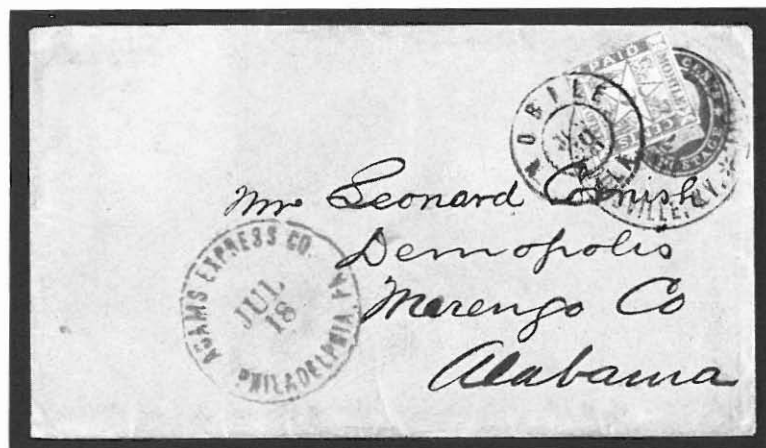 PAID
MOBILE
CENTS
MOBILE
ALA
STAGE
VILLE, KY.
Mr Leonard Cornish
Demopolis
Marengo Co
Alabama
ADAMS EXPRESS CO.
JUL
18
PHILADELPHIA, PA